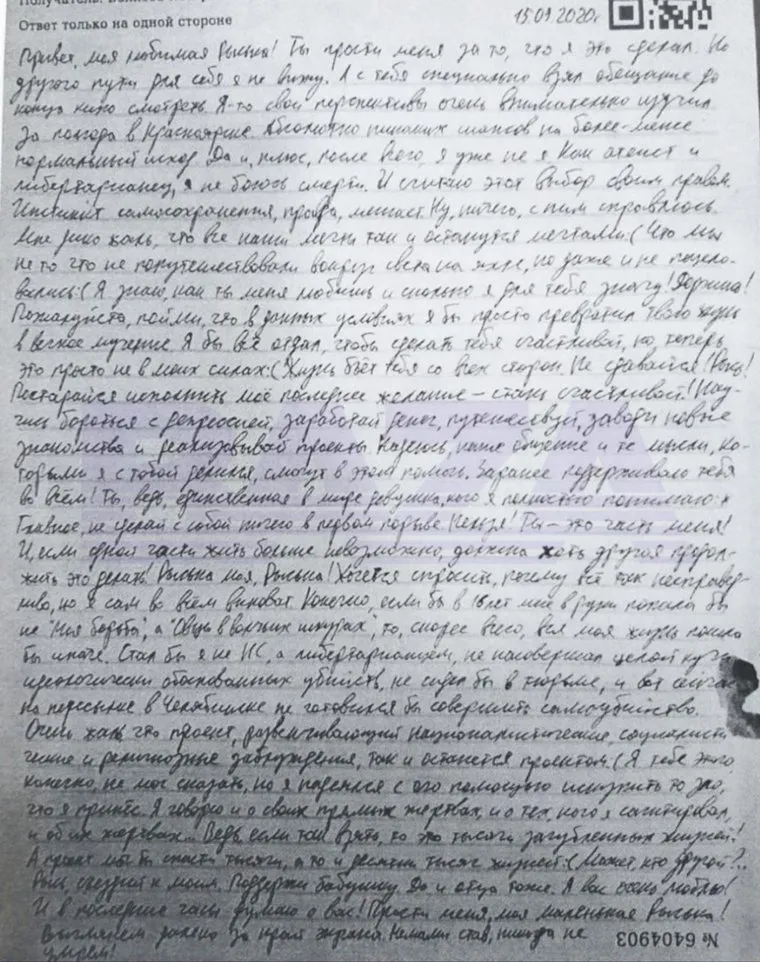 Ответ только на одной стороне
15.09.2020г
Привет, моя любимая Рыська! Ты прости меня за то, что я это сделал. Но
другого пути для себя я не вижу. А с тебя специально взял обещание до
конца кино смотреть. Я-то свои перспективы очень внимательно изучил
за полгода в Красноярске. Абсолютно никаких шансов на более-менее
нормальный исход. Да и, плюс, после всего, я уже не я. Как атеист и
либертарианец, я не боюсь смерти. И считаю этот выбор своим правом.
Инстинкт самосохранения, правда, мешает. Ну, ничего, с ним справлюсь.
Мне жаль, что все наши мечты так и останутся мечтами:( Что мы
не то что не попутешествовали вокруг света на яхте, но даже и не поцело-
вались:( Я знаю, как ты меня любишь и сколько я для тебя значу!
Пожалуйста, пойми, что в данных условиях я бы просто превратил твою жизнь
в вечное мучение. Я бы всё отдал, чтобы сделать тебя счастливой, но, теперь,
это просто не в моих силах:( Жизнь бьёт тебя со всех сторон. Не сдавайся! Рысь!
Постарайся исполнить моё последнее желание – стань счастливой! Нау-
чись бороться с депрессией, заработай денег, путешествуй, заводи новые
знакомства и реализовывай проекты. Надеюсь, наше общение и те мысли, ко-
торыми я с тобой делился, смогут в этом помочь. Заранее поддерживаю тебя
во всём! Ты, ведь, единственная в мире девушка, кого я полностью понимаю
Главное, не сделай с собой ничего в первом порыве. Нельзя! Ты – это часть меня!
И, если одной части жить больше невозможно, должна хоть другая продол-
жить это делать! Рыська моя, Рыська! Хочется спросить, почему всё так несправед-
ливо, но я сам во всём виноват. Конечно, если бы в 16 лет мне в руки попала бы
не "Моя борьба", а "Овцы в волчьих шкурах", то, скорее всего, вся моя жизнь пошла
бы иначе. Стал бы я не НС, а либертарианцем, не насовершал целой кучи
идеологически обоснованных убийств, не сидел бы в тюрьме, и вот сейчас
на пересылке в Челябинске не готовился бы совершить самоубийство.
Очень жаль что проект, развенчивающий националистические, социалисти-
ческие и религиозные заблуждения, так и останется проектом:( Я тебе этого,
конечно, не мог сказать, но я надеялся с его помощью искупить то зло,
что я принёс. Я говорю и о своих прямых жертвах, и о тех, кого я сагитировал,
и об их жертвах... Ведь, если так взять, то это тысячи загубленных жизней!
А проект мог бы спасти тысячи, а то и десятки тысяч жизней:( Может, кто другой?..
Рысь, съезди к моим. Поддержи бабушку. Да и отца тоже. Я вас очень люблю!
И в последние часы думаю о вас! Прости меня, моя маленькая Рыська!
Выглянем далеко за край экрана. Немами став, никогда не
умрем!
№ 6404903